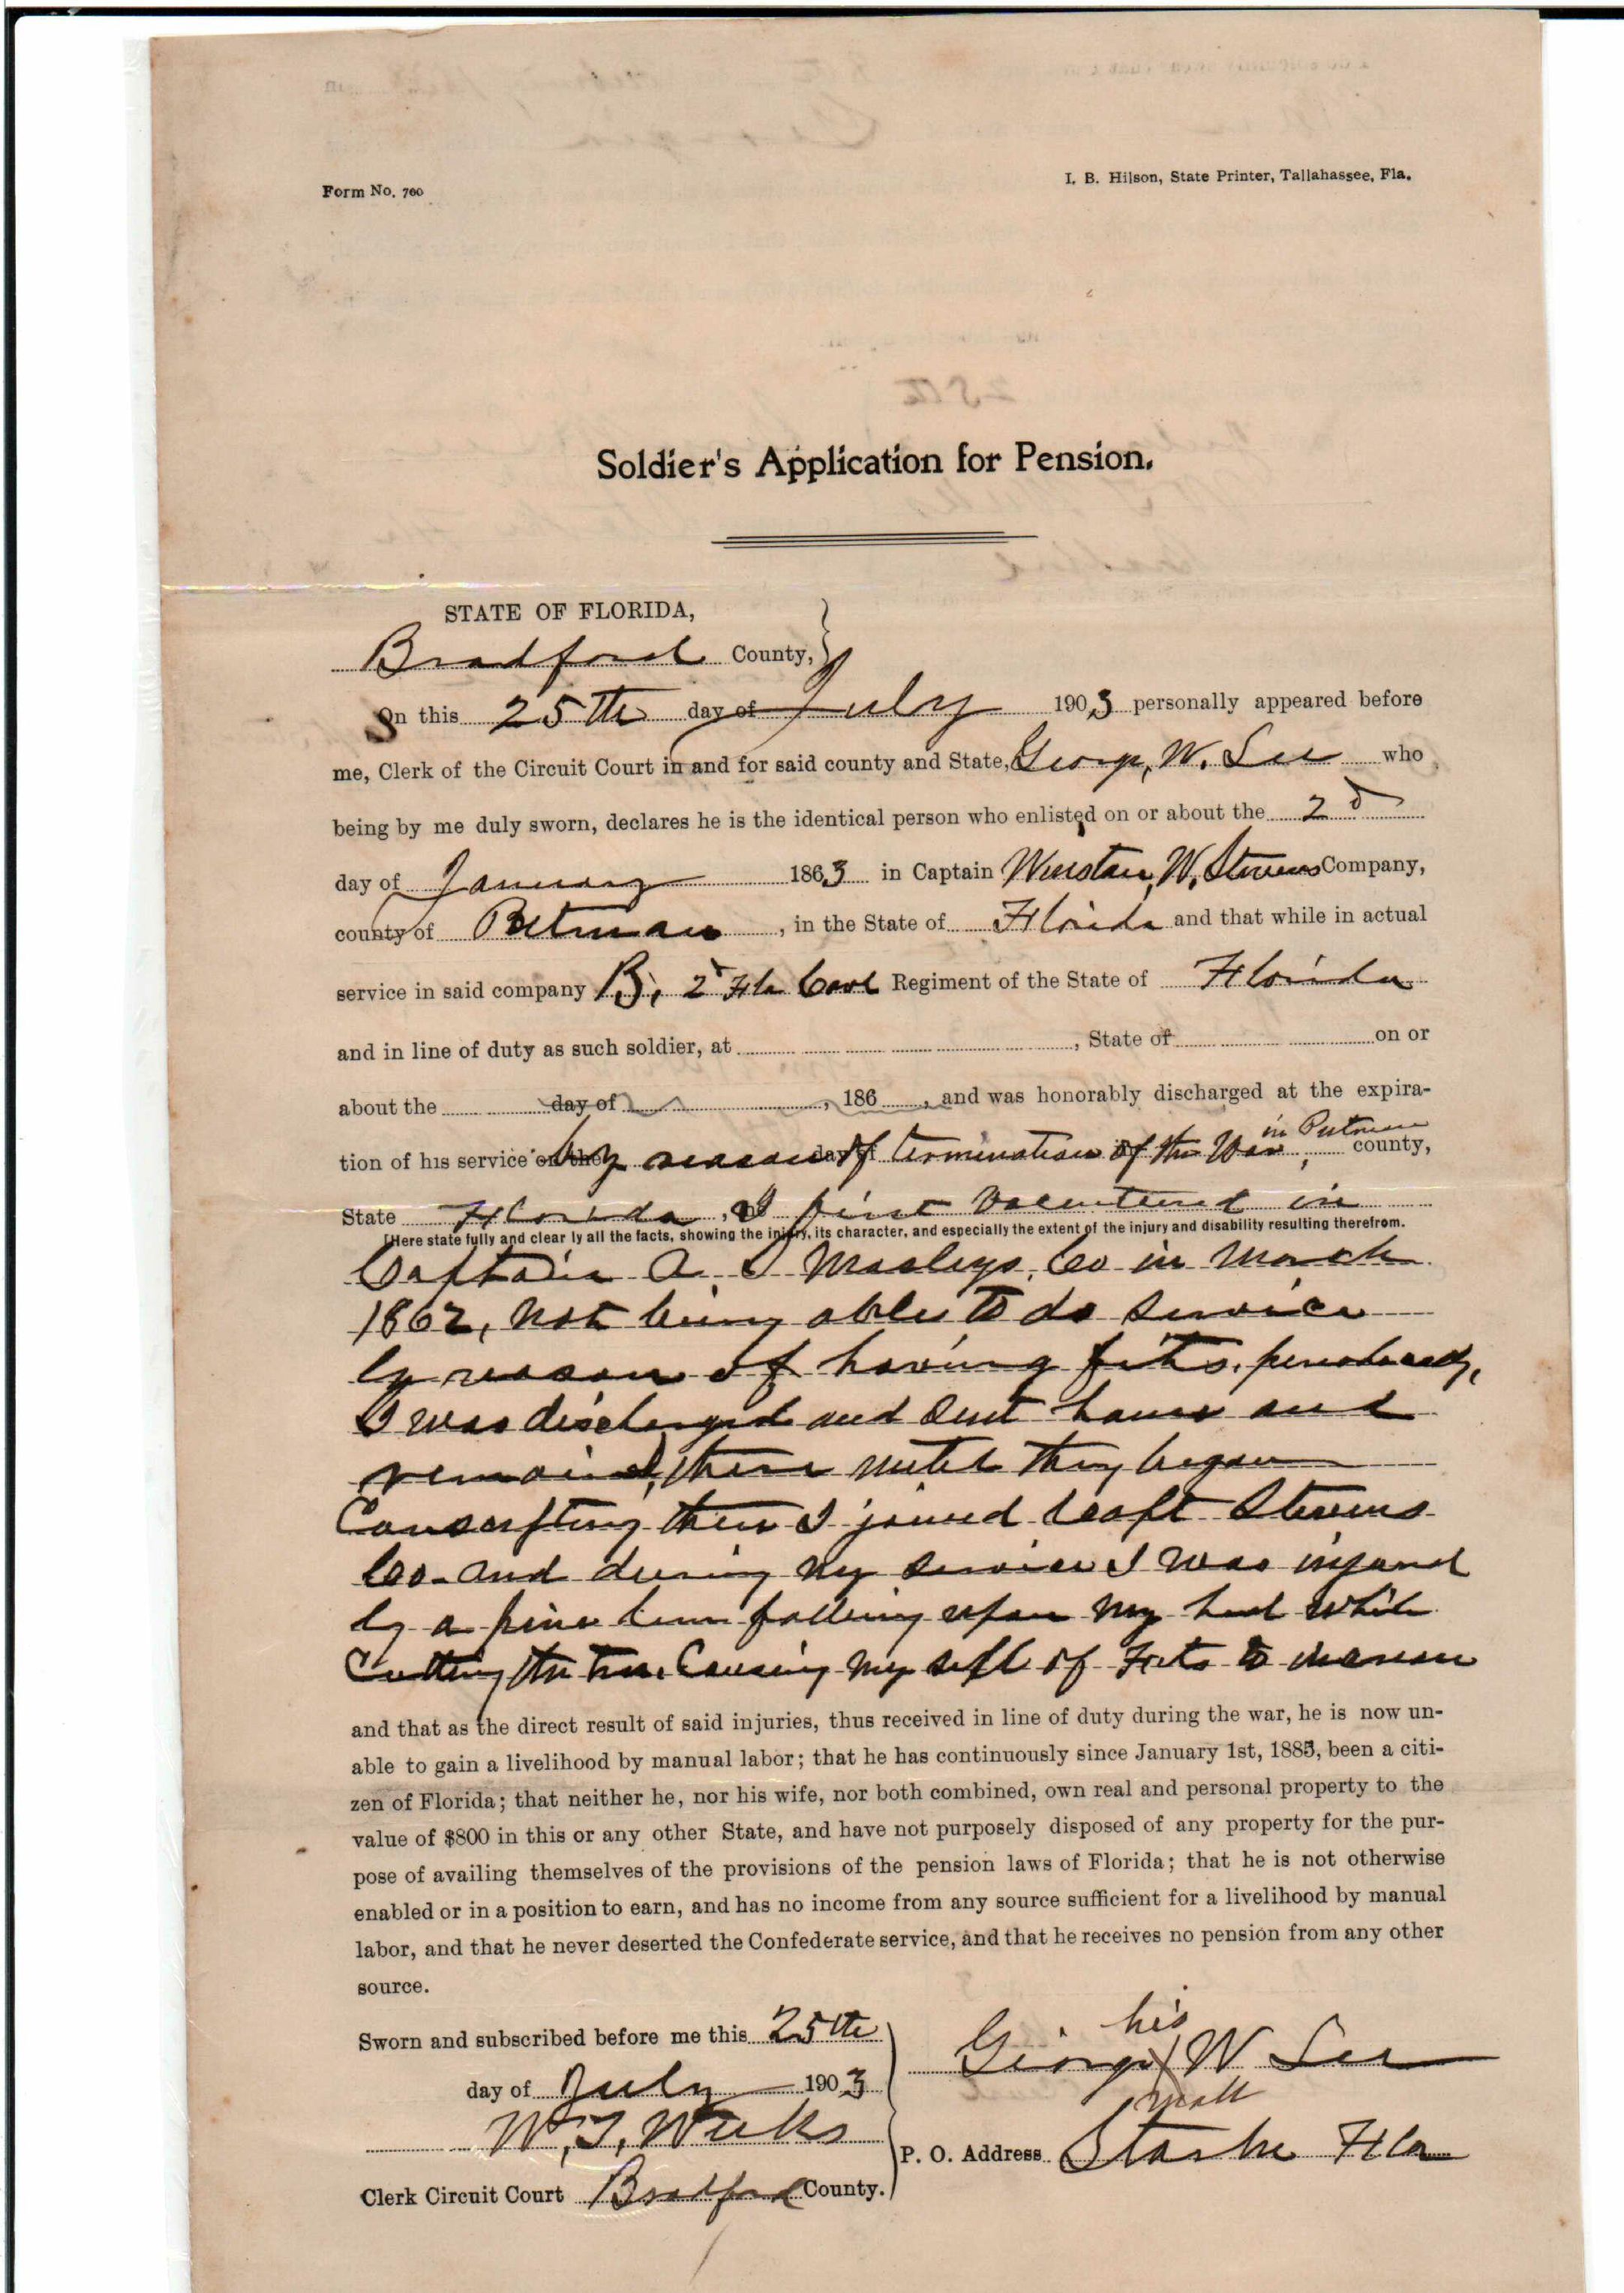 Form No. 700
I. B. Hilson, State Printer, Tallahassee, Fla.
Soldier's Application for Pension.
STATE OF FLORIDA,
Bradford County,
On this 25th day of July 1903 personally appeared before
me, Clerk of the Circuit Court in and for said county and State, George W. Lee who
being by me duly sworn, declares he is the identical person who enlisted on or about the 2d
day of January 1863 in Captain Winston W. Stevens Company,
county of Putnam, in the State of Florida and that while in actual
service in said company B, 2d Fla Cavl Regiment of the State of Florida
and in line of duty as such soldier, at , State of on or
about the day of , 186 , and was honorably discharged at the expira-
tion of his service by reason of termination of the War, in Putnam county,
State Florida, I first volunteered in
[Here state fully and clearly all the facts, showing the injury, its character, and especially the extent of the injury and disability resulting therefrom.
Captain A I Mosleys, Co in March
1862, not being able to do service
by reason of having fits,
I was discharged and sent home and
remained there until they began
Conscripting then I joined Capt Stevens
Co and during my service I was injured
by a pine falling upon my head while
Cutting the tree. Causing my of Fits to
and that as the direct result of said injuries, thus received in line of duty during the war, he is now un-
able to gain a livelihood by manual labor; that he has continuously since January 1st, 1885, been a citi-
zen of Florida; that neither he, nor his wife, nor both combined, own real and personal property to the
value of $800 in this or any other State, and have not purposely disposed of any property for the pur-
pose of availing themselves of the provisions of the pension laws of Florida; that he is not otherwise
enabled or in a position to earn, and has no income from any source sufficient for a livelihood by manual
labor, and that he never deserted the Confederate service, and that he receives no pension from any other
source.
Sworn and subscribed before me this 25th
day of July 1903
W. T. Weeks
Clerk Circuit Court Bradford County.
his
George X W Lee
mark
P. O. Address Starke Fla